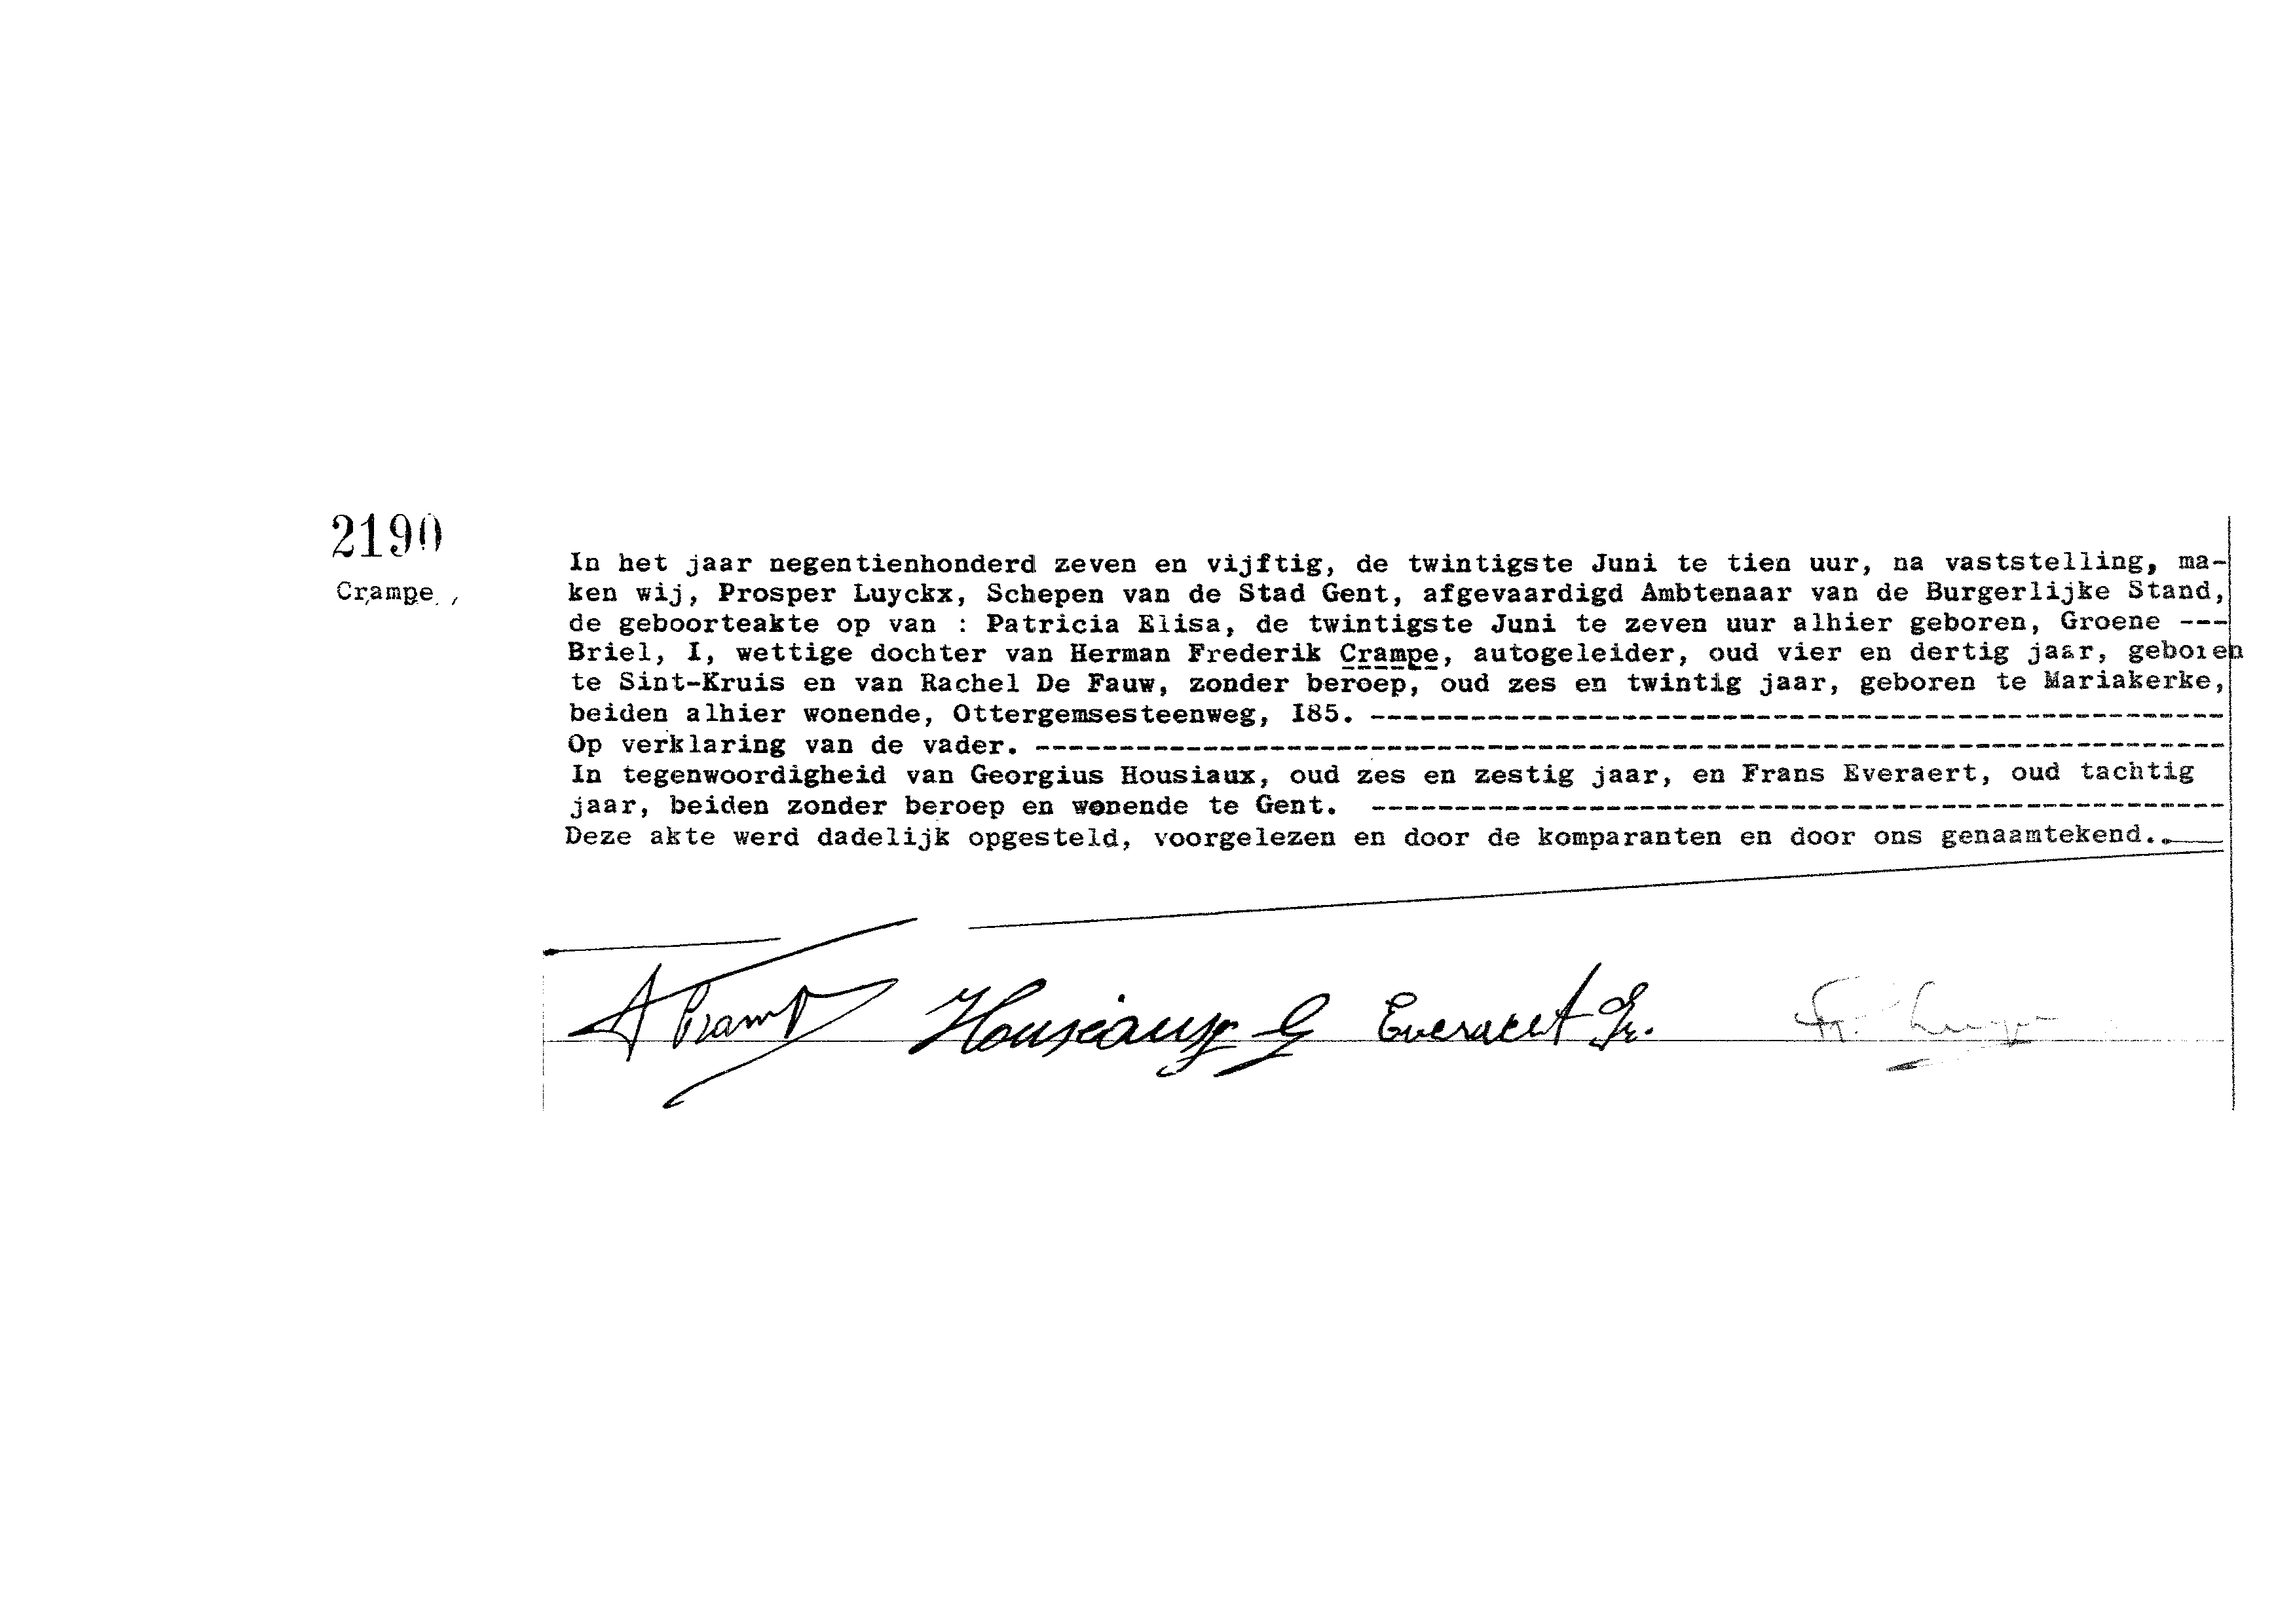 2190
Crampe,
In het jaar negentienhonderd zeven en vijftig, de twintigste Juni te tien uur, na vaststelling, ma-
ken wij, Prosper Luyckx, Schepen van de Stad Gent, afgevaardigd Ambtenaar van de Burgerlijke Stand,
de geboorteakte op van : Patricia Elisa, de twintigste Juni te zeven uur alhier geboren, Groene ---
Briel, I, wettige dochter van Herman Frederik Crampe, autogeleider, oud vier en dertig jaar, geboren
te Sint-Kruis en van Rachel De Fauw, zonder beroep, oud zes en twintig jaar, geboren te Mariakerke,
beiden alhier wonende, Ottergemsesteenweg, I85. ---
Op verklaring van de vader. ---
In tegenwoordigheid van Georgius Housiaux, oud zes en zestig jaar, en Frans Everaert, oud tachtig
jaar, beiden zonder beroep en wonende te Gent. ---
Deze akte werd dadelijk opgesteld, voorgelezen en door de komparanten en door ons genaamtekend..
Housiaux G Everaert Fr.